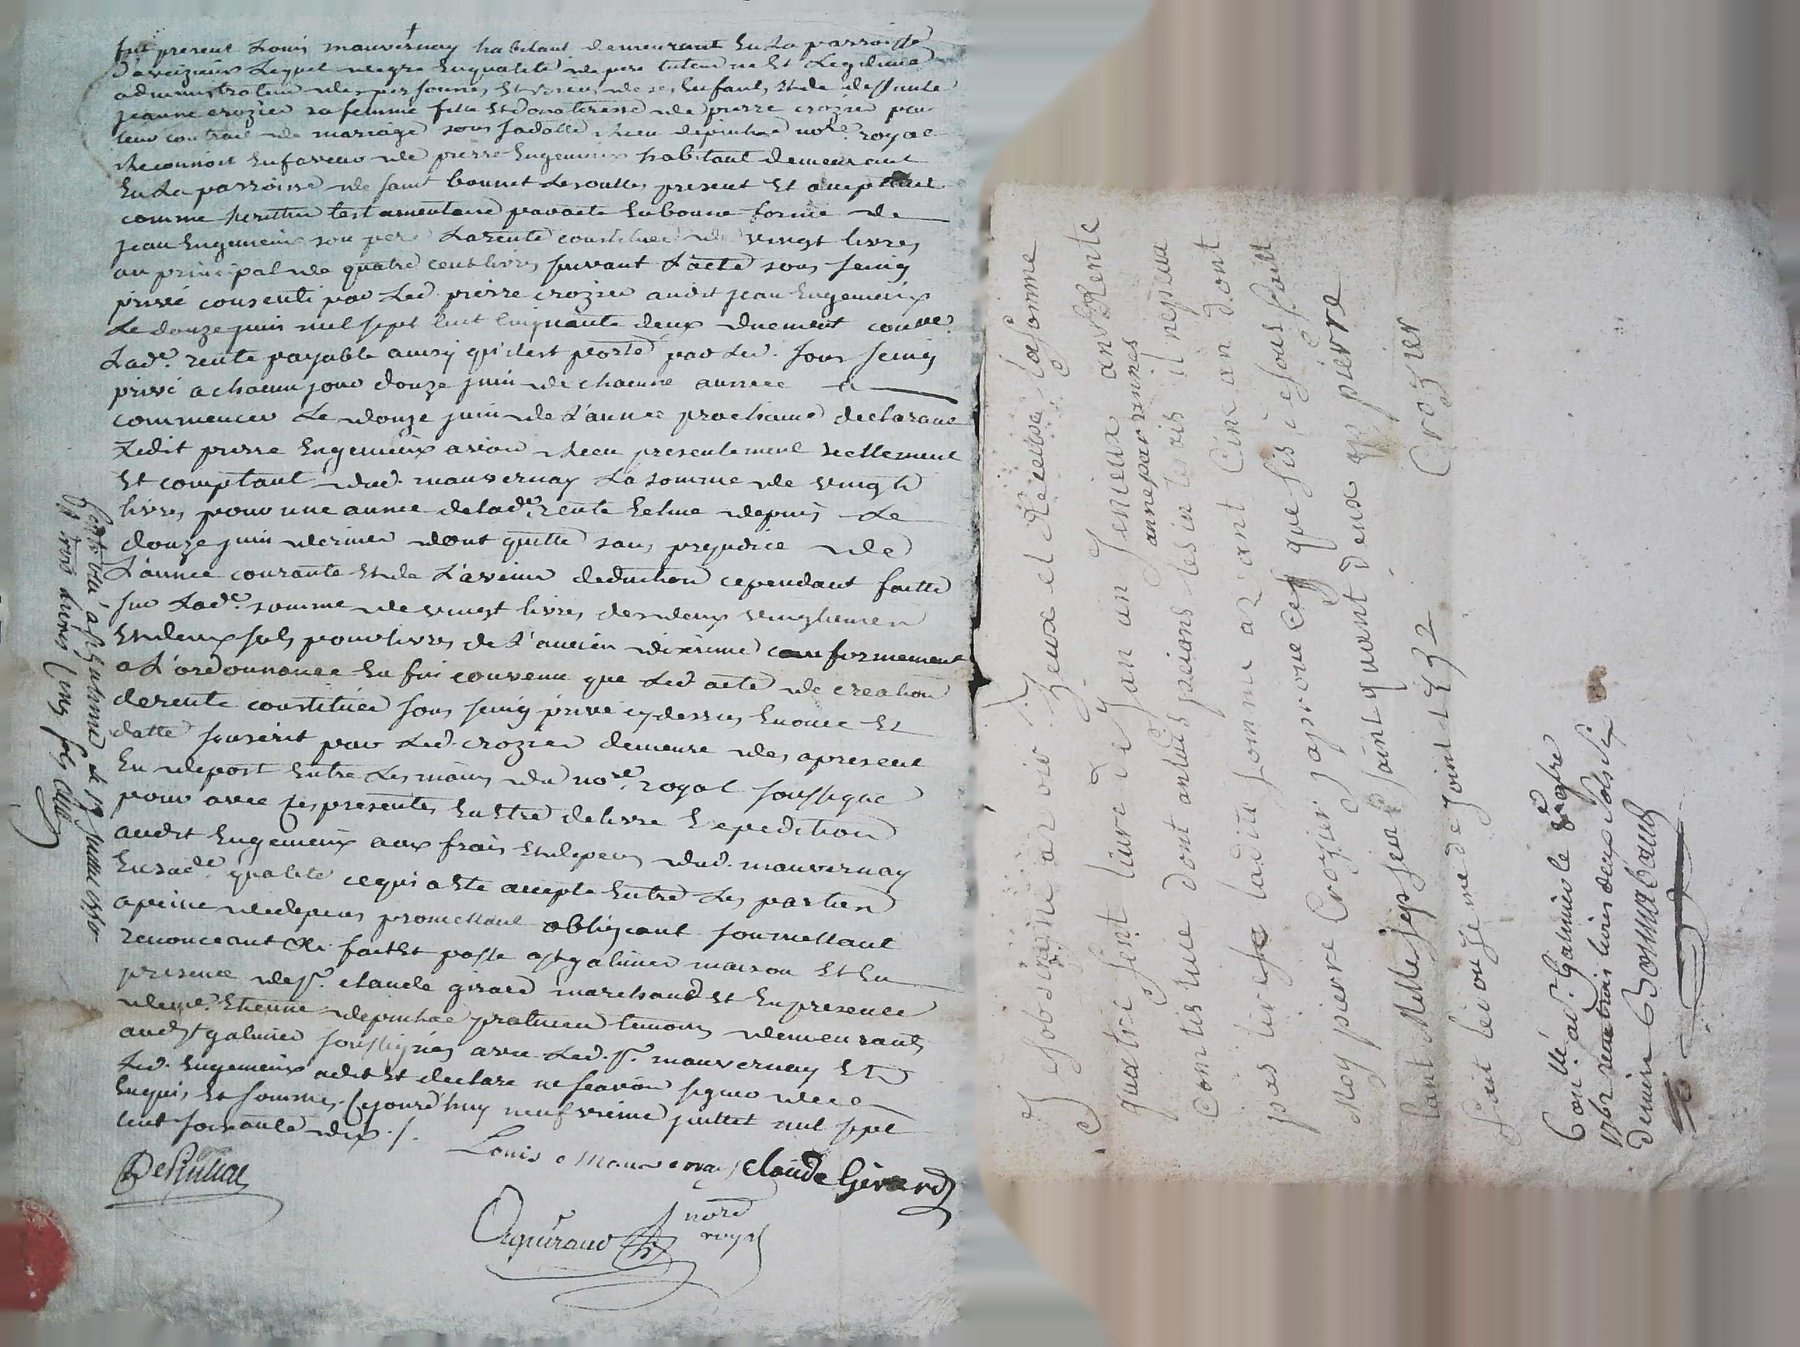 fut present Louis mauvernay habitant demeurant En La parroisse
D'aveizieux Lequel degre En qualité de pere tuteur né Et Legitime
administrateur des personnes Et biens de ses Enfants Et de deffunte
jeanne crozier sa femme fille Et donateresse de pierre crozier par
leur contrat de mariage sous sa datte Receu depinhac nore. royal
Reconnoit En faveur de pierre Engemieux habitant demeurant
En La parroisse de saint bonnet Les oulles present Et acceptant
comme heritier testamentaire par acte En bonne forme de
jean Engemieux son pere La rente constituée de vingt livres
au principal de quatre cent livres suivant L'acte sous seing
privé consenti par Led. pierre crozier audit jean Engemieux
Le douze juin mil sept cent cinquante deux duement conllé.
Lade. rente payable ainsy qu'il est porté par Led. sous seing
privé a chacun jour douze juin de chacune année a
commencer Le douze juin de L'année prochaine declarant
Ledit pierre Engemieux avoir Receu presentement reellement
Et comptant dud. mauvernay La somme de vingt
livres pour une année de lade. rente Echue depuis Le
douze juin dernier dont quitte sans prejudice de
L'année courante Et de L'avenir deduction cependant faitte
sur Lade. somme de vingt livres des deux vingtiemes
Et deux sols pour livres de L'ancien dixieme conformement
a L'ordonnance En fin convenu que Led. acte de creation
de rente constituée sous seing privé cy dessus Enoncé Et
datté souscrit par Led. crozier demeure des apresent
En depost Entre Les mains du nore. royal soussigné
pour avec ses presentes En Etre delivré Expedition
audit Engemieux aux frais Et depens dud. mauvernay
En sade. qualité ce qui a Eté accepté Entre Les parties
a peine de depens promettant obligeant soumettant
renonceant &c. fait Et passé a st galmier maison Et En
presence de sr. claude girard marchand Et En presence
de me. Etienne depinhac praticien temoins demeurants
aud. st galmier soussignés avec Led. sr. mauvernay Et
Led. Engemieux a dit Et declaré ne scavoir signer de ce
Enquis Et sommés. Cejourd'huy neufvieme juillet mil sept
cent soixante dix ./.
Louis Mauvernay Claude Gérard
DePinhac
nore
royal
Contrôllé a st galmier le 17 juillet 1770
trois livres cinq sols
Je sobsigné avoir Zeux et Receiux la somme
quatre sent livre de Jan an Jemieux an Rente
annepar vennies
Contistuue dont antuis pacions les in teris il nepieux
pas lire ladite somme avant Cink an dont
Moy piere Crozier japrouve ces que sis è sous saint
fant Mille sep sent saintquant deux pierre
Fait le vouzieme de Joint 1752 Crozier
Con llé. a st. Galmier le
1762 vingt trois livres deux sols six
deniers Bonnabaud